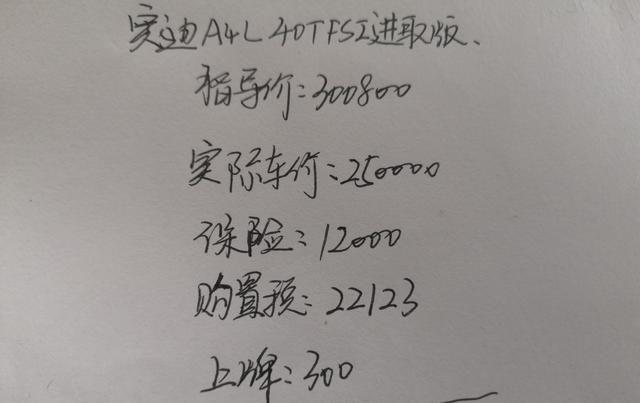 奥迪A4L 40TFSI进取版、
指导价:300800
实际车价:250000
保险:12000
购置税:22123
上牌:300